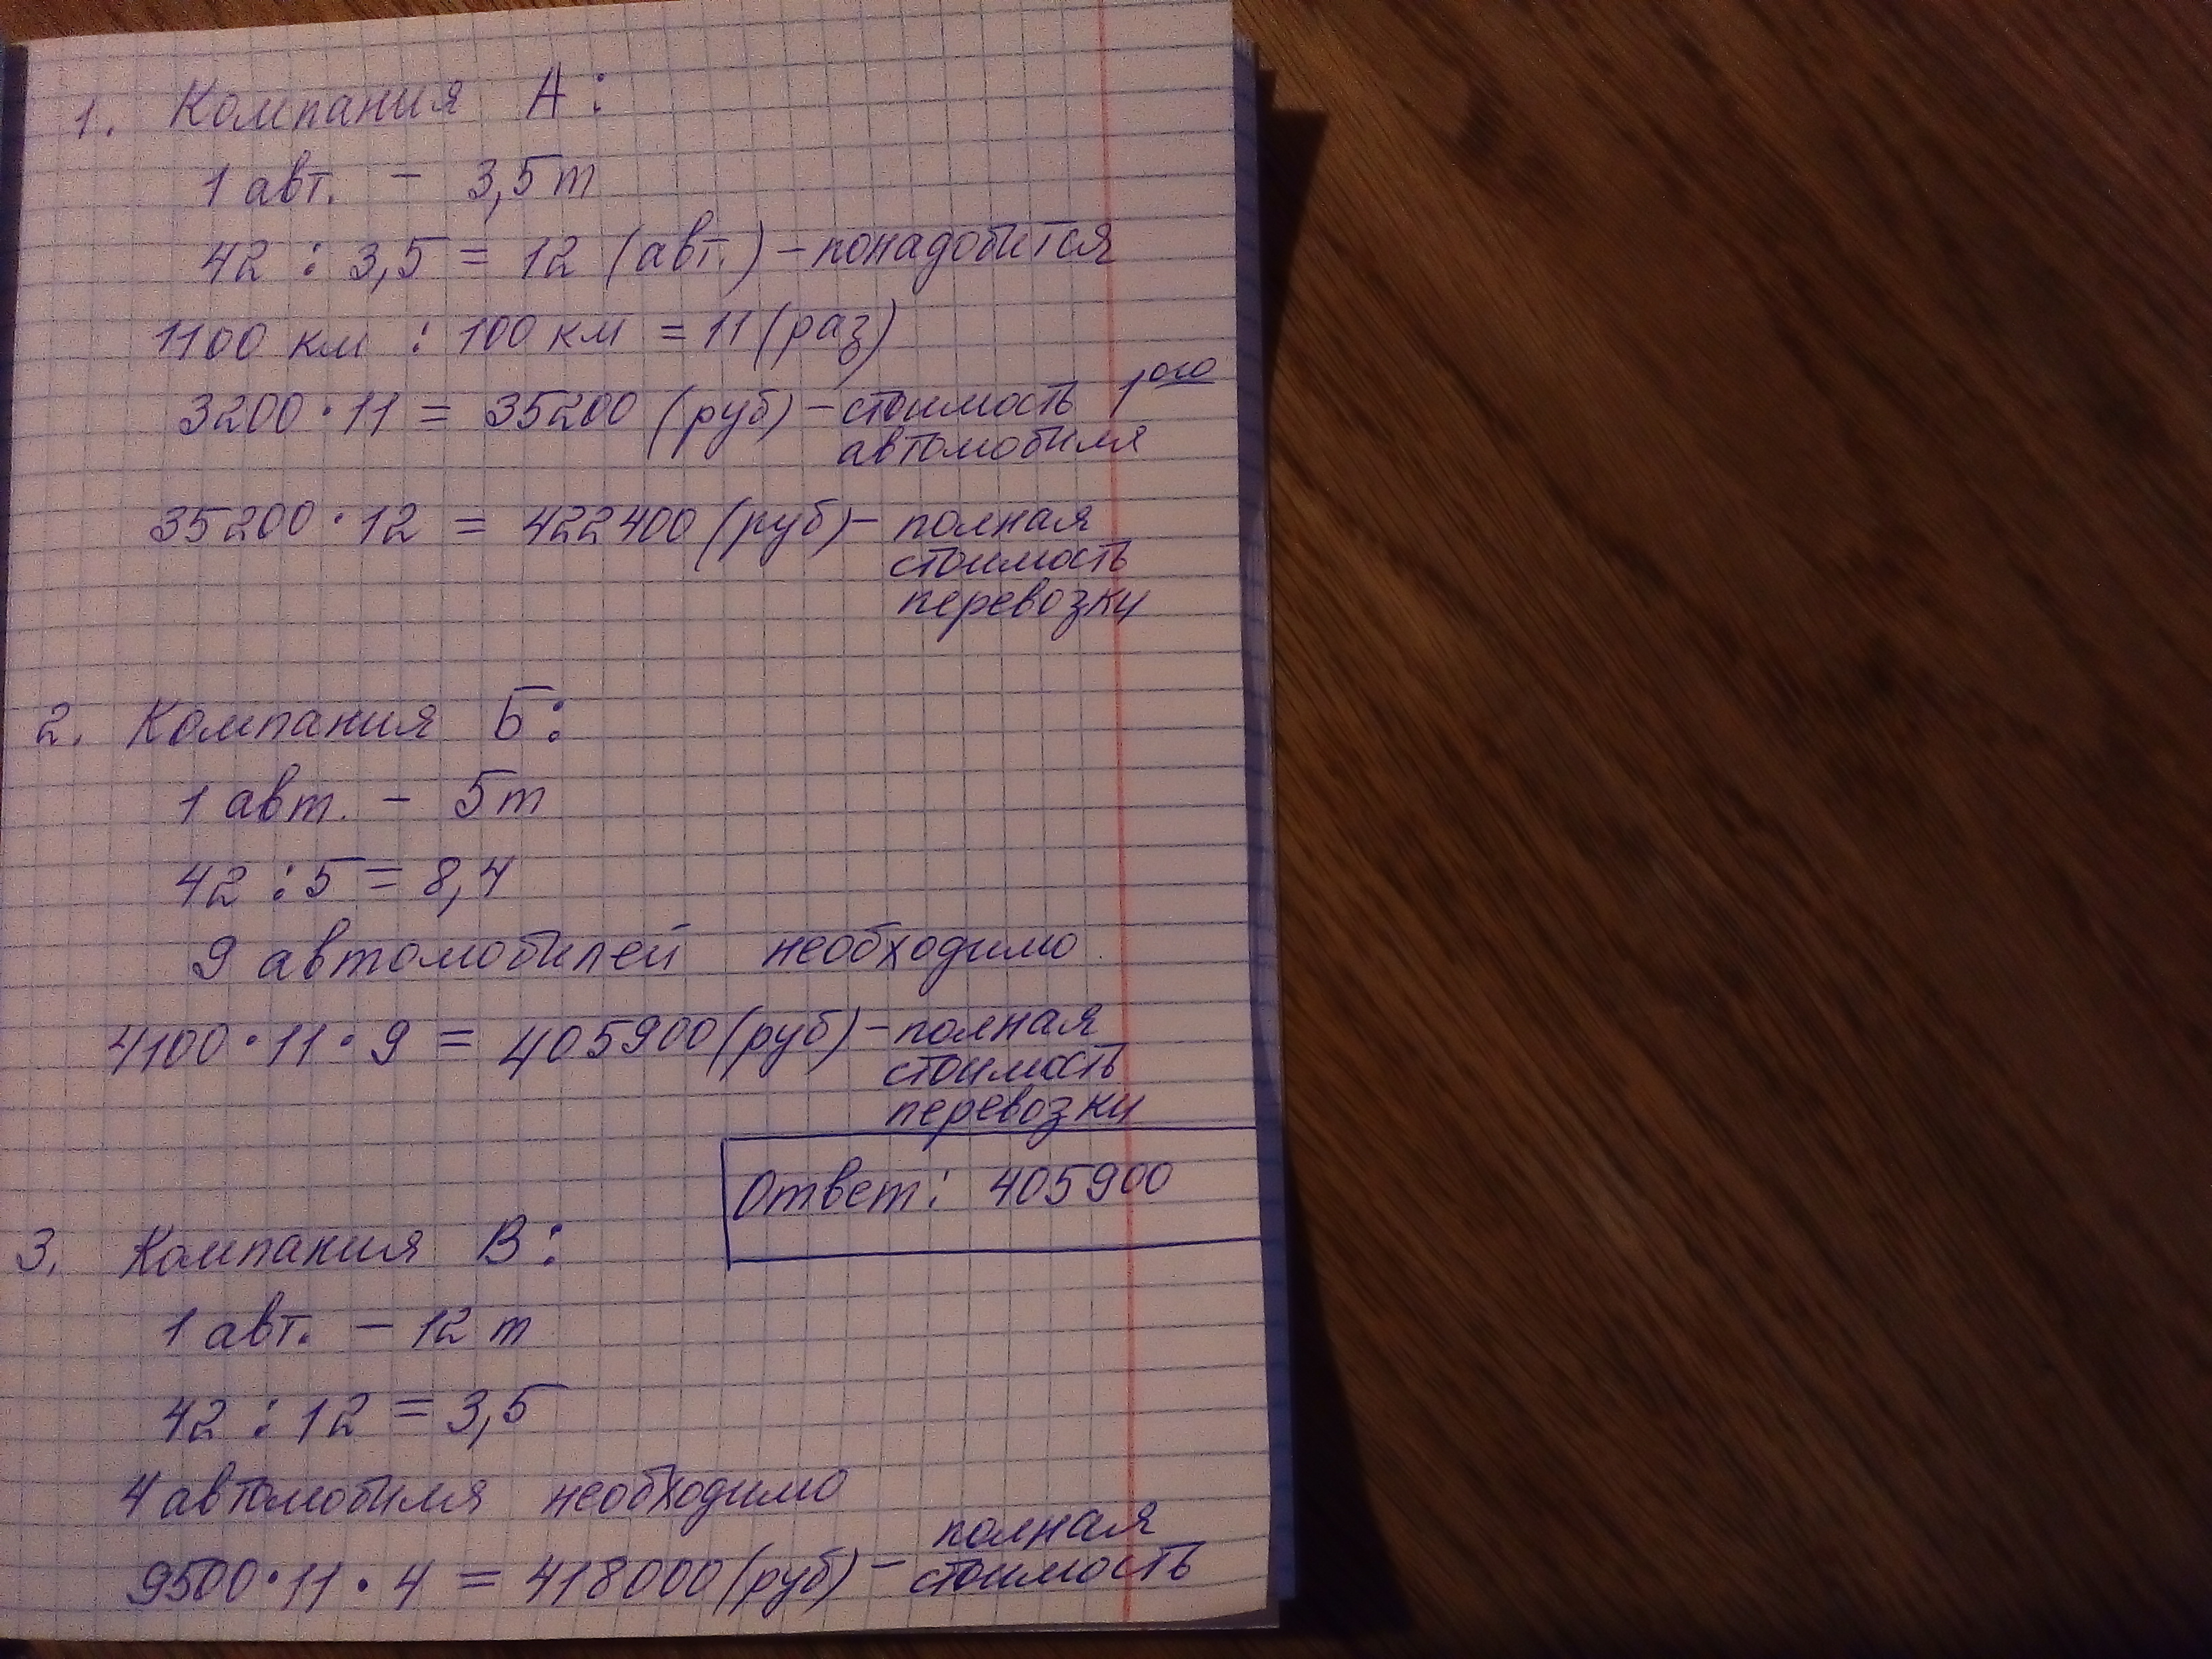 1. Компания А:
1 авт. – 3,5 т
42 : 3,5 = 12 (авт.) – понадобится
1100 км : 100 км = 11 (раз)
3200 · 11 = 35200 (руб) – стоимость 1ого
автомобиля
35200 · 12 = 422400 (руб) – полная
стоимость
перевозки
2. Компания Б:
1 авт. – 5т
42 : 5 = 8,4
9 автомобилей необходимо
4100 · 11 · 9 = 405900 (руб) – полная
стоимость
перевозки
Ответ: 405900
3. Компания В:
1 авт. – 12 т
42 : 12 = 3,5
4 автомобиля необходимо
9500 · 11 · 4 = 418000 (руб) – полная
стоимость